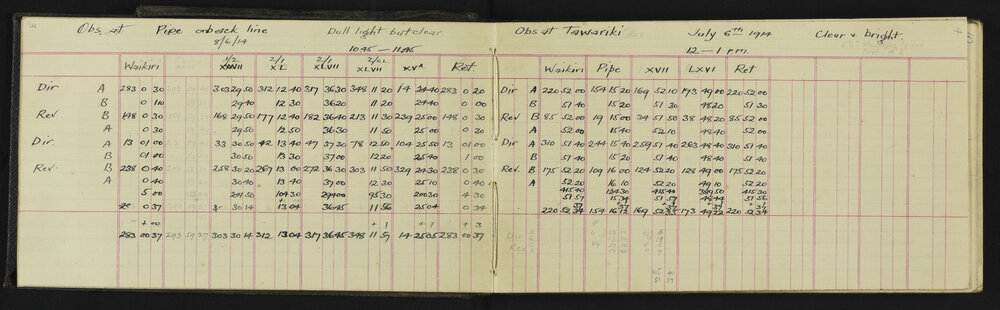 Obs. at Pipe on back line Dull light but clear
8/6/14 10.45 — 11.45
Waikiri XL XLVII XLVII XVᴬ Ret.
Dir A 283 0 30 303 29 50 312 12 40 317 36 30 348 11 20 14 24 40 283 0 20
B 0 10 29 40 12 30 36 20 11 20 24 40 0 00
Rev B 148 0 30 168 29 50 177 12 40 182 36 40 213 11 30 239 25 00 148 0 30
A 0 30 29 50 12 50 36 30 11 50 25 00 0 30
Dir. A 13 01 00 33 30 50 42 13 40 47 37 30 78 12 50 104 25 50 13 01 00
B 01 00 30 50 13 30 37 00 12 20 25 40 1 00
Rev B 238 0 40 258 30 20 267 13 00 272 36 30 303 11 50 329 24 30 238 0 30
A 0 40 30 40 13 40 37 00 12 30 25 10 0 40
5 00 4 30
0 37 30 14 13 04 36 45 11 56 25 04 0 34
+ 00 + 1 + 1 + 3
283 00 37 293 59 27 303 30 14 312 13 04 317 36 45 348 11 57 14 25 05 283 00 37
Obs at Tawariki July 6th 1914 Clear & bright.
12 — 1 p.m.
Waikiri Pipe XVII LXVI Ret
Dir A 220 52 00 154 15 20 169 52 10 173 49 00 220 52 00
B 51 40 15 20 51 30 48 20 51 30
Rev B 85 52 00 19 15 00 34 51 50 38 48 20 85 52 00
A 52 00 15 40 52 10 48 40 52 00
Dir A 310 51 40 244 15 40 259 51 40 263 48 40 310 51 40
B 51 40 15 20 51 40 48 40 51 40
Rev B 175 52 20 109 16 00 124 52 20 128 49 00 175 52 20
A 52 20 16 10 52 20 49 10 52 20
415 40 124 30 415 40 415 30
51 57 15 34 51 57 48 44 51 56
37 +37 +37 +37 + 37
220 52 34 154 169 52 173 49 220 52 34
Dir
Rev